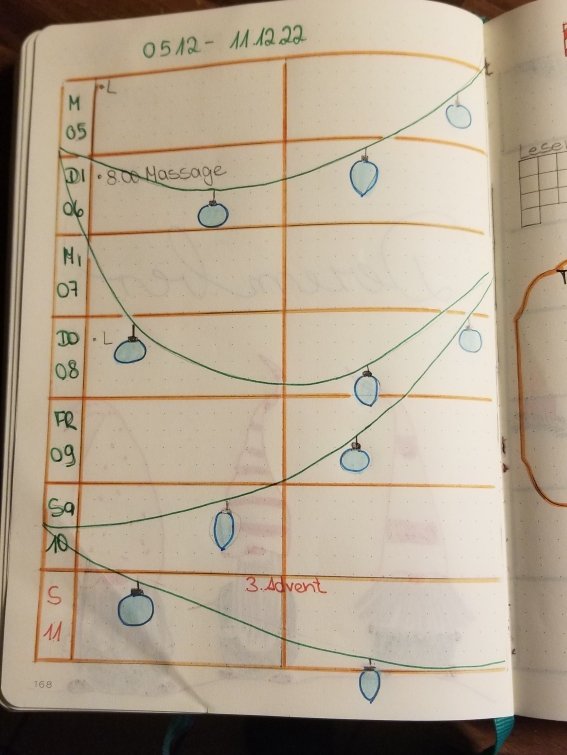 0512 - 111222
M
05
• L
DI
06
• 8.00 Massage
MI
07
DO
08
• L
FR
09
Sa
10
S
11
3. Advent
168
Lese